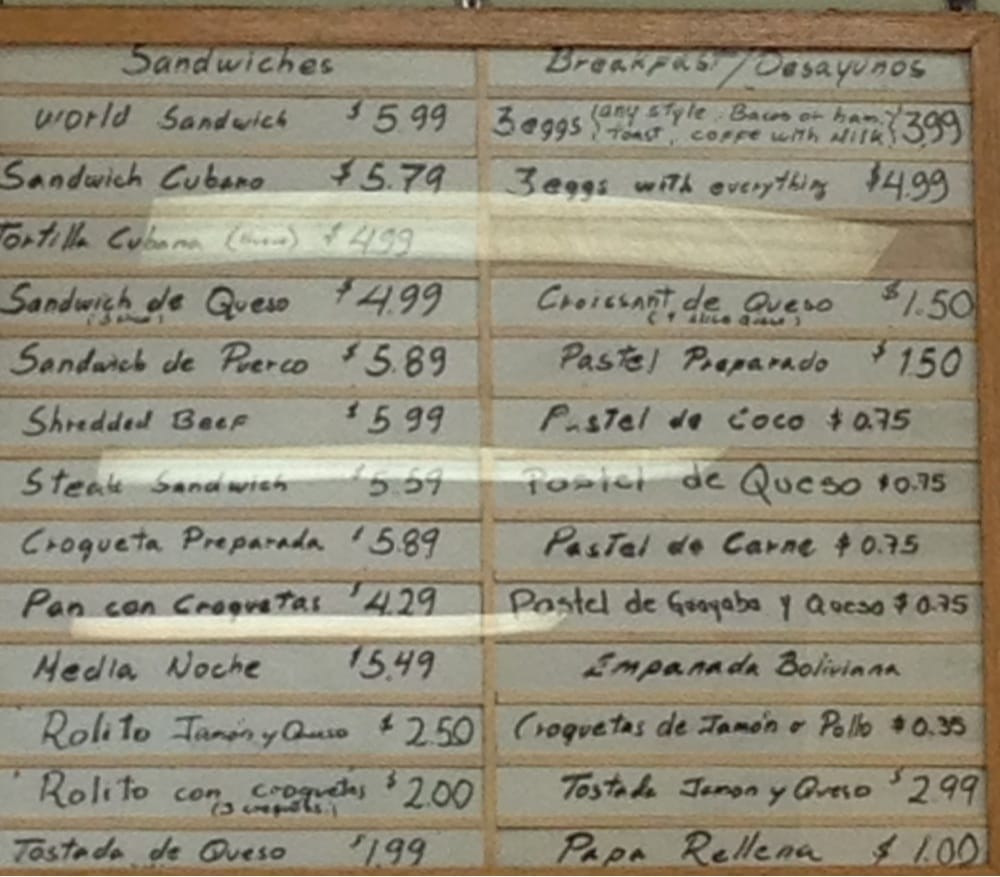 Sandwiches
World Sandwich $5.99
Sandwich Cubano $5.79
Tortilla Cubana $4.99
Sandwich de Queso $4.99
Sandwich de Puerco $5.89
Shredded Beef $5.99
Steak Sandwich $5.59
Croqueta Preparada $5.89
Pan con Croquetas $4.29
Media Noche $5.49
Rolito Jamón y Queso $2.50
Rolito con croquetas $2.00
(3 croquets.)
Tostada de Queso $1.99
Breakfast/Desayunos
3 eggs (any style. Bacon or ham. $3.99
toast, coffe with Milk)
3 eggs with everything $4.99
Croissant de Queso $1.50
Pastel Preparado $1.50
Pastel de Coco $0.75
Pastel de Queso $0.75
Pastel de Carne $0.75
Pastel de Guayaba y Queso $0.75
Empanada Boliviana
Croquetas de Jamón o Pollo $0.35
Tostada Jamon y Queso $2.99
Papa Rellena $1.00